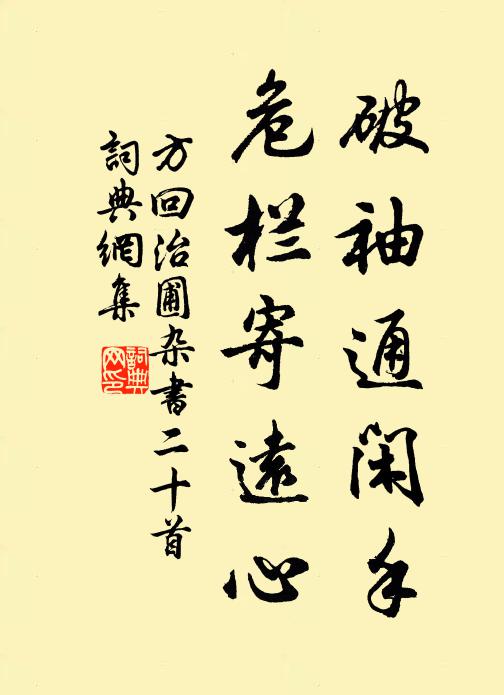 破袖通闲手
危栏寄遠心
方回治圃杂書二十首
詞典網集
詞典
网印